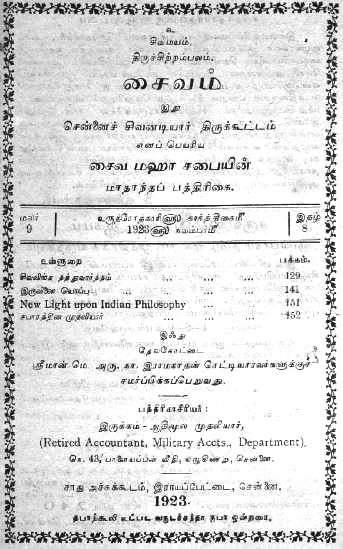 உ
சிவமயம்.
திருச்சிற்றம்பலம்.
சைவம்
இது
சென்னைச் சிவனடியார் திருக்கூட்டம்
எனப் பெயரிய
சைவ மஹா சபையின்
மாதாந்தப் பத்திரிகை.
மலர் 9
உருத்ரோத்காரி௵ கார்த்திகைமீ
1923௵ நவம்பர்மீ
இதழ் 8
உள்ளுறை பக்கம்.
சிவலிங்க தத்துவார்த்தம் ... ... ... 129
இருவினை யொப்பு ... ... ... 141
New Light upon Indian Philosophy ... ... 151
சபாரத்தின முதலியார் ... ... ... 152
இஃது
தேவகோட்டை
ஸ்ரீமான்-மெ. அரு. நா. இராமநாதன் செட்டியாரவர்களுக்குச்
சமர்ப்பிக்கப்பெறுவது.
பத்திராசிரியர்:
இருக்கம் - ஆதிமூல முதலியார்,
(Retired Accountant, Military Accts., Department).
நெ. 43, வீதி, ஏழுகிணறு, சென்னை.
சாது அச்சுக்கூடம், இராயப்பேட்டை, சென்னை.
1923.
தபாற்கூலி உட்பட வருடச்சந்தா ரூபா ஒன்றரை.